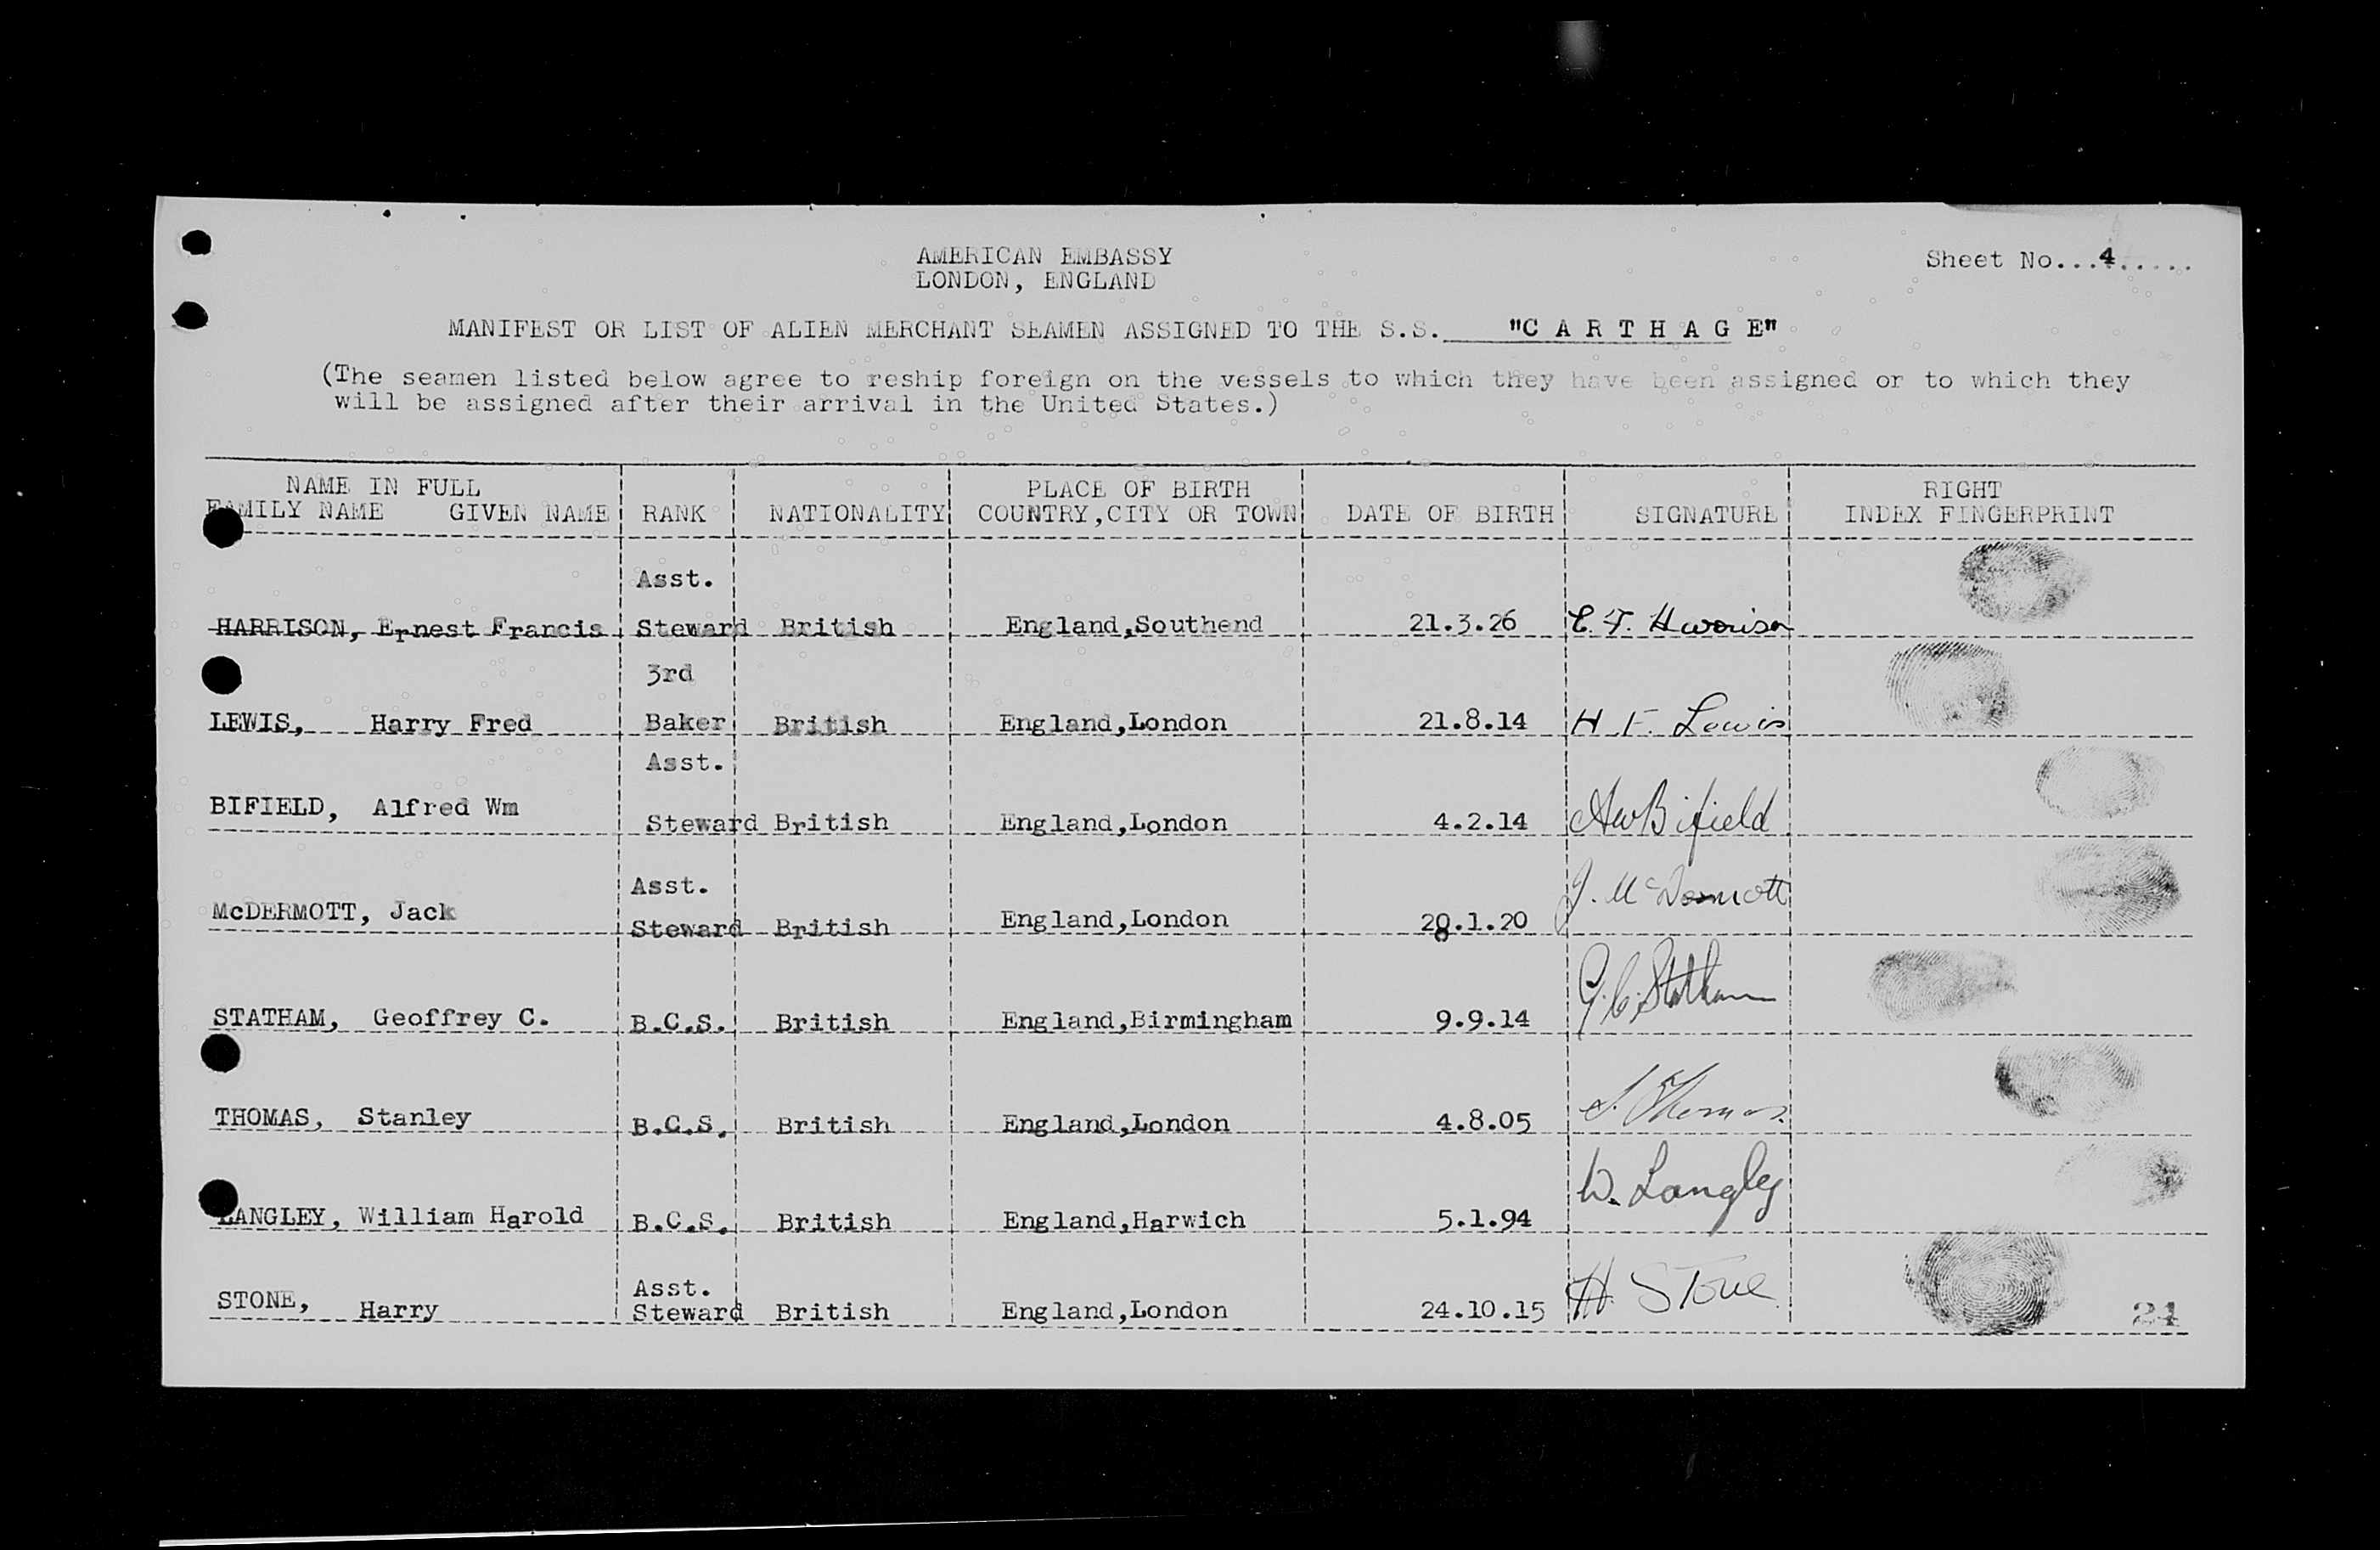 AMERICAN EMBASSY
LONDON, ENGLAND
Sheet No...4.....
MANIFEST OR LIST OF ALIEN MERCHANT SEAMEN ASSIGNED TO THE S.S. "C A R T H A G E"
(The seamen listed below agree to reship foreign on the vessels to which they have been assigned or to which they
will be assigned after their arrival in the United States.)
NAME IN FULL
FAMILY NAME GIVEN NAME RANK NATIONALITY PLACE OF BIRTH COUNTRY,CITY OR TOWN DATE OF BIRTH SIGNATURE RIGHT INDEX FINGERPRINT
Asst.
HARRISON, Ernest Francis Steward British England,Southend 21.3.26 E. F. Harrison
3rd
LEWIS, Harry Fred Baker British England,London 21.8.14 H. F. Lewis
Asst.
BIFIELD, Alfred Wm Steward British England,London 4.2.14 AWBifield
Asst.
McDERMOTT, Jack Steward British England,London 28.1.20 J. McDermott
STATHAM, Geoffrey C. B.C.S. British England,Birmingham 9.9.14 G.C.Statham
THOMAS, Stanley B.C.S. British England,London 4.8.05 S. Thomas.
LANGLEY, William Harold B.C.S. British England,Harwich 5.1.94 W. Langley
Asst.
STONE, Harry Steward British England,London 24.10.15 H. Stone
24